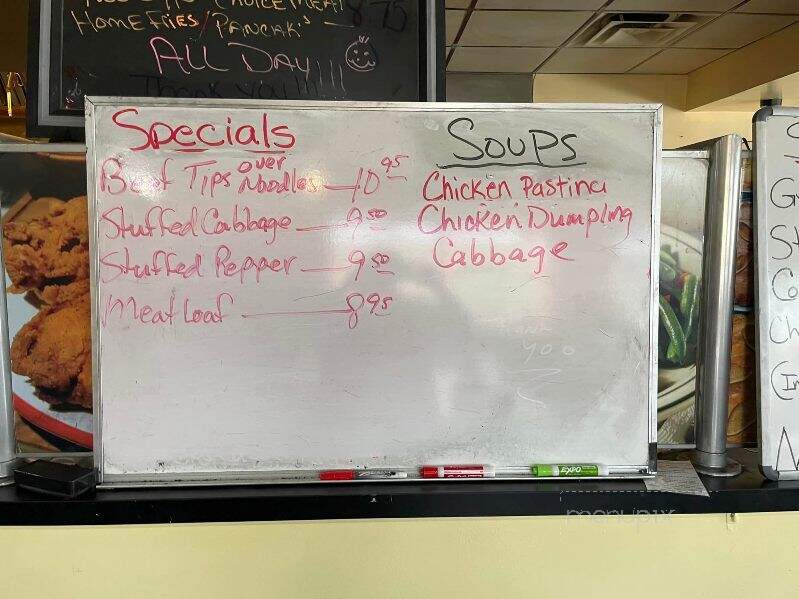 CHOICE MEAT
HOME FRIES / PANCAK's - 8.75
ALL DAY!!!!
THANK YOU!!!!!
Specials
Beef Tips over Noodles 10 95
Stuffed Cabbage 9 50
Stuffed Pepper 9 50
Meat Loaf 8 95
Soups
Chicken Pastina
Chicken Dumpling
Cabbage
YOO
EXPO
menupix
G
St
Co
Ch
N